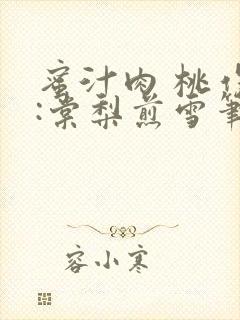 蜜汁肉桃作
:棠梨煎雪筆
容小寒